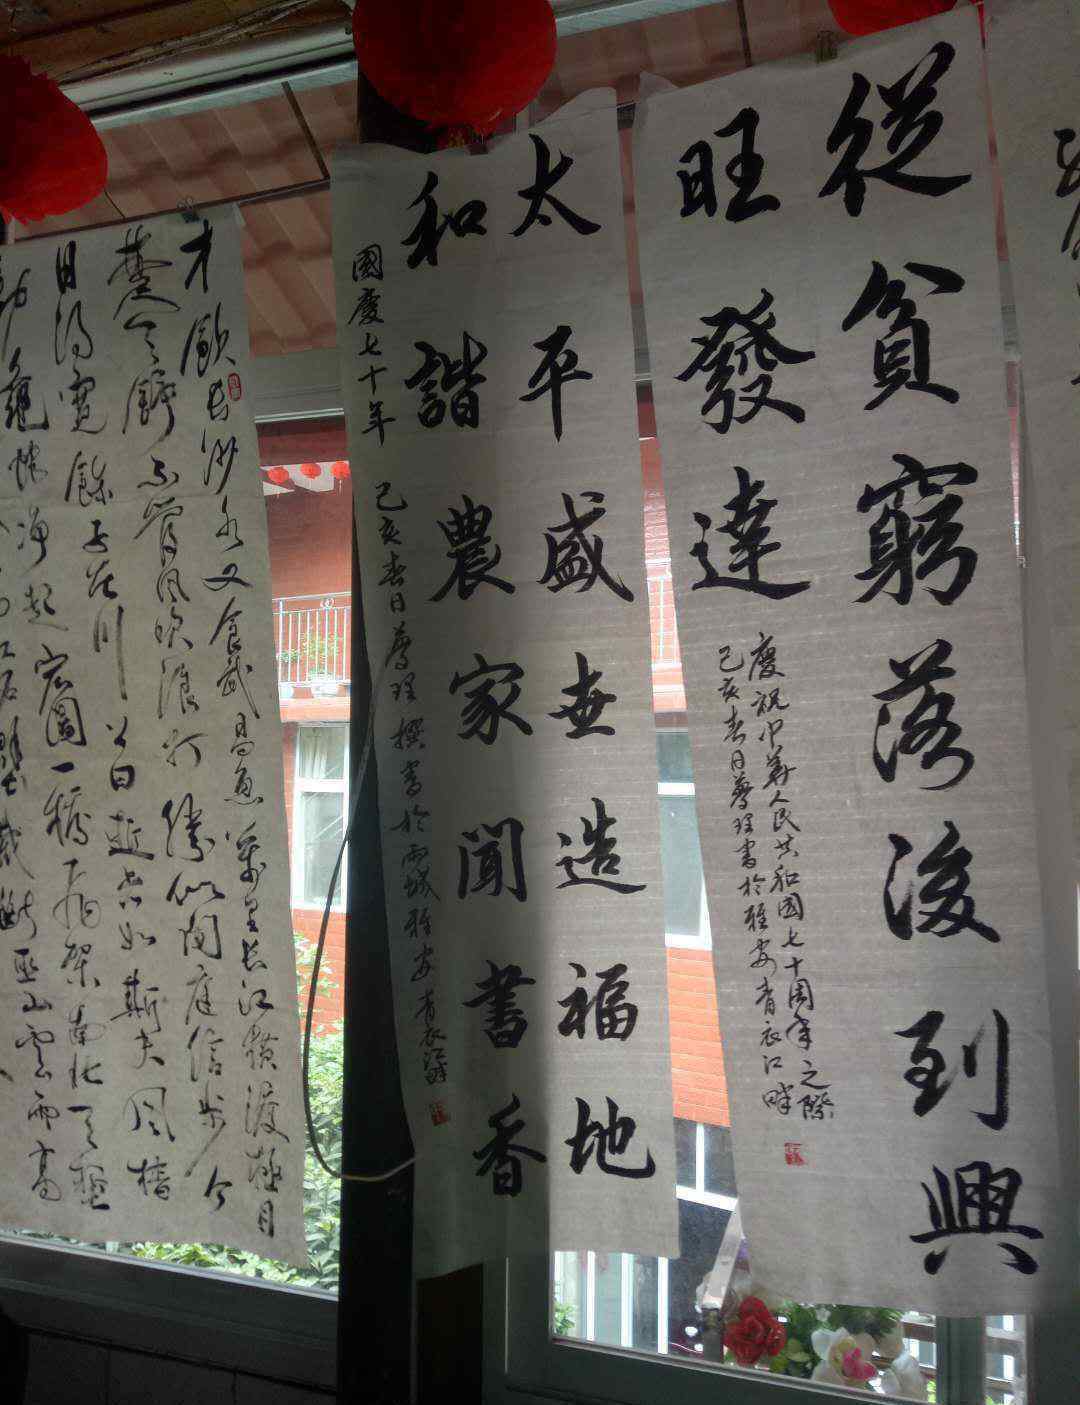 從貧窮落後到興
旺發達
慶祝中華人民共和國七十周年之際
己亥春日書於雅安青衣江畔
太平盛世造福地
和諧農家聞書香
國慶七十年 己亥春日撰書於雨城雅安青衣江畔
才飲长沙水又食武昌魚萬里长江橫渡極目
楚天舒不管風吹浪打勝似閒庭信步今
日得寬餘子在川上曰逝者如斯夫風檣
動龜蛇净起宏圖一橋飛架南北天塹
江石壁截斷巫山雲雨高